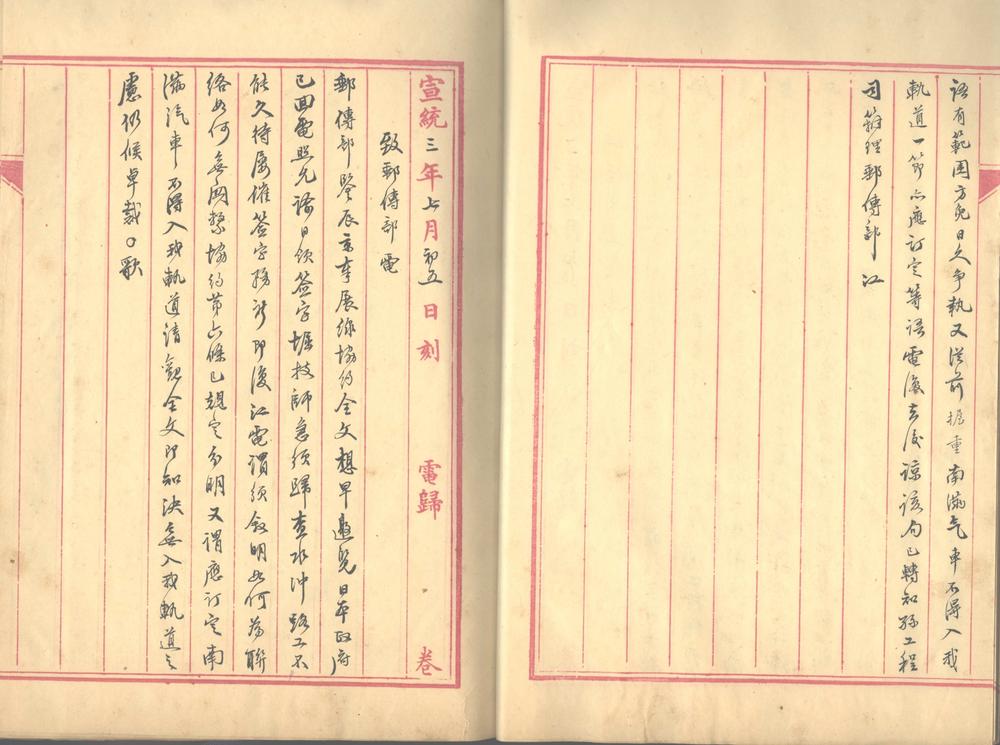 語有範圍方免日久爭執又從前提重南滿气車不得入我
軌道一節亦應訂定等語電復去後諒該局已轉知孫工程
司籟理郵傳部 江
宣統三年七月初五日刻 電歸 卷
致郵傳部電
郵傳部鑒辰京奉展線協約全文想早邀覽日本政府
已回電照允諭日領簽字堀技師急須歸查水沖路工不
能久待屢催簽字務祈即復江電謂須敘明如何為聯
絡如何無關繫協約第六條已規定分明又謂應訂定南
滿汽車不得入我軌道請觀全文即知決無入我軌道之
慮仍候卓裁〇歌